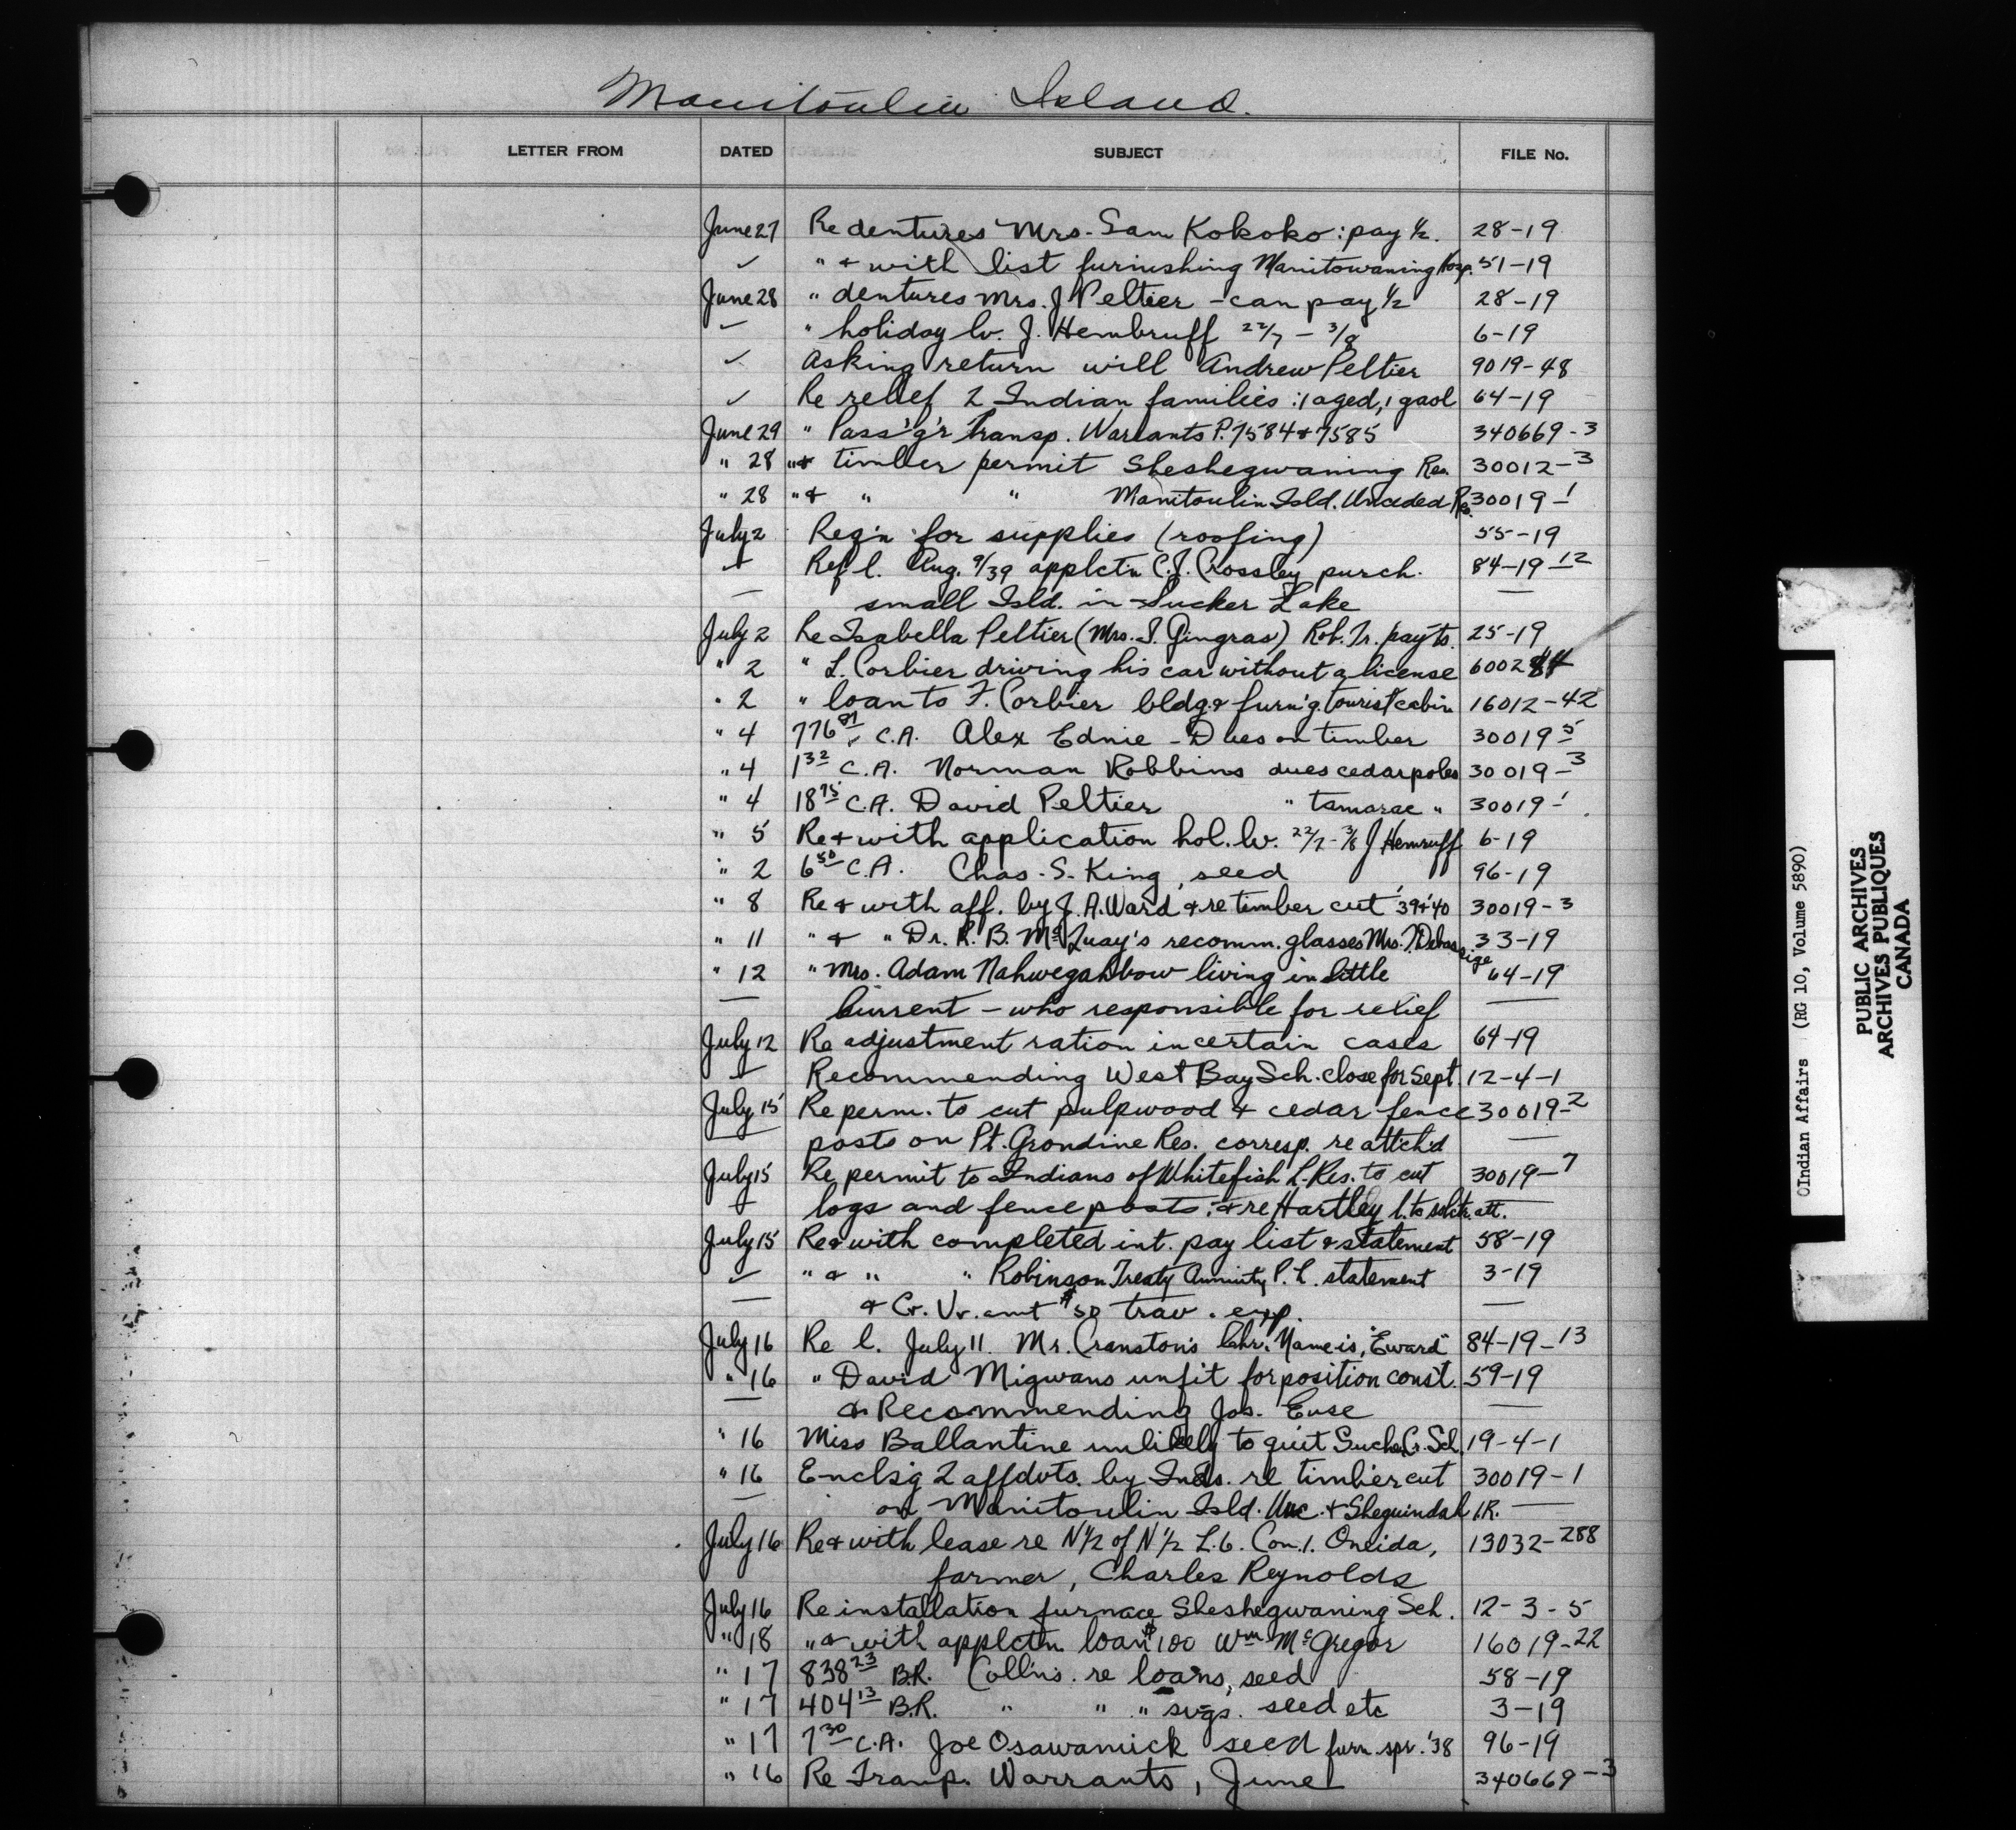 Manitoulin Island.
LETTER FROM DATED SUBJECT FILE No.
June 27 Re dentures Mrs. Sam Kokoko: pay ½. 28-19
✓ " & with list furnishing Manitowaning Hosp. 51-19
June 28 " dentures Mrs. J Peltier - can pay ½ 28-19
✓ " holiday lv. J. Hembruff 22/7 - 3/8 6-19
✓ Asking return will Andrew Peltier 9019-48
✓ Re relief 2 Indian families: 1 aged, 1 gaol 64-19
June 29 " Pass'g'r Transp. Warrants P. 7584 & 7585 340669-3
" 28 " & timber permit Sheshegwaning Res. 30012-3
" 28 " & " " Manitoulin Isld. Unceded Res. 30019-1
July 2 Req'n for supplies (roofing) 55-19
✓ Ref l. Aug. 9/39 applctn C.J. Crossley purch. 84-19-12
— small Isld. in Sucker Lake —
July 2 Re Isabella Peltier (Mrs. J. Gingras) Rob. Tr. pay'ts. 25-19
" 2 " L. Corbier driving his car without a license 6002
" 2 " loan to F. Corbier bldg. & furn'g. tourist cabin 16012-42
" 4 776 87 C.A. Alex Ednie - Dues on timber 30019-5
" 4 1 32 C.A. Norman Robbins dues cedar poles 30019-3
" 4 18 75 C.A. David Peltier " tamarac " 30019-1
" 5 Re & with application hol. lv. 22/7 - 3/8 J Hemruff 6-19
" 2 6 50 C.A. Chas. S. King, seed 96-19
" 8 Re & with aff. by J.A. Ward & re timber cut '39 & '40 30019-3
" 11 " & " Dr. R. B. McQuay's recomm. glasses Mrs. J. Debassige 33-19
" 12 " Mrs. Adam Nahwegahbow living in Little 64-19
— Current - who responsible for relief —
July 12 Re adjustment ration in certain cases 64-19
✓ Recommending West Bay Sch. close for Sept. 12-4-1
July 15 Re perm. to cut pulpwood & cedar fence 30019-2
posts on Pt. Grondine Res. corresp. re attch'd —
July 15 Re permit to Indians of Whitefish L. Res. to cut 30019-7
✓ logs and fence posts: & re Hartley l. to att. —
July 15 Re & with completed int. pay list & statement 58-19
✓ " & " " Robinson Treaty Annuity P. L. statement 3-19
— & Cr. Vr. amt $50 trav. exp. —
July 16 Re l. July 11. Mr. Cranston's Chr. Name is, "Eward" 84-19-13
" 16 " David Migwans unfit for position const. 59-19
— & Recommending Jos. Ense —
" 16 Miss Ballantine unlikely to quit Sucker Cr. Sch. 19-4-1
" 16 Enclsg 2 affdvts. by Inds. re timber cut 30019-1
— on Manitoulin Isld. Unc. & Sheguindah I.R. —
July 16 Re & with lease re N½ of N½ L.6. Con.1. Oneida, 13032-288
farmer, Charles Reynolds
July 16 Re installation furnace Sheshegwaning Sch. 12-3-5
" 18 " & with applctn loan $100 Wm McGregor 16019-22
" 17 838 23 B.R. Coll'ns. re loans, seed 58-19
" 17 404 13 B.R. " " " svgs. seed etc 3-19
" 17 7 30 C.A. Joe Osawamick seed furn. spr. '38 96-19
" 16 Re Transp. Warrants, June 340669-3
Indian Affairs (RG 10, Volume 5890)
PUBLIC ARCHIVES
ARCHIVES PUBLIQUES
CANADA